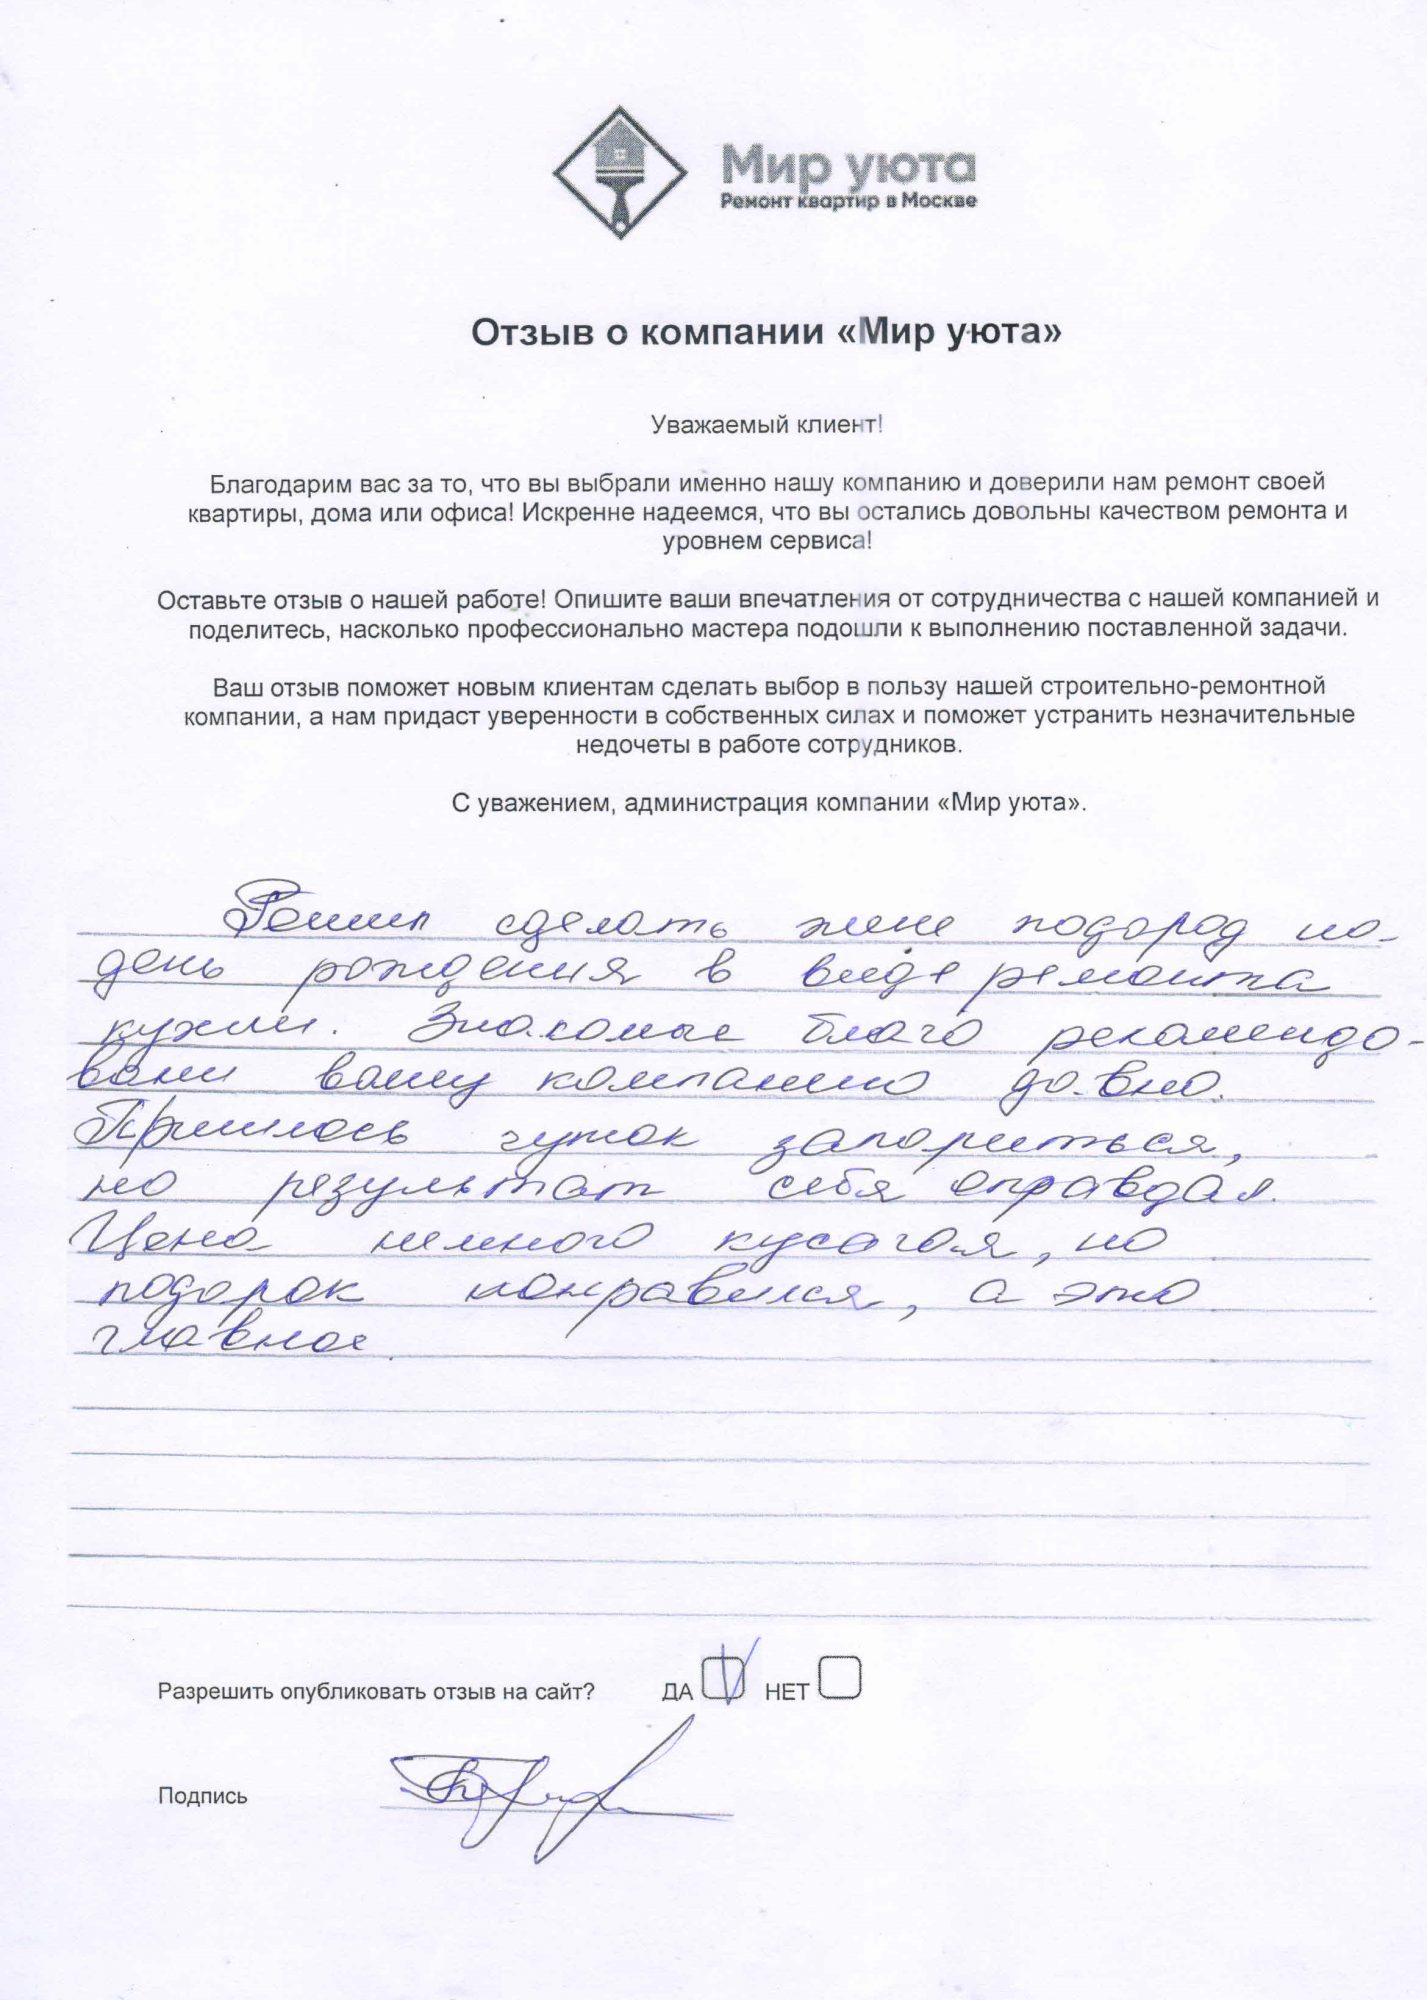 Мир уюта
Ремонт квартир в Москве
Отзыв о компании «Мир уюта»
Уважаемый клиент!
Благодарим вас за то, что вы выбрали именно нашу компанию и доверили нам ремонт своей
квартиры, дома или офиса! Искренне надеемся, что вы остались довольны качеством ремонта и
уровнем сервиса!
Оставьте отзыв о нашей работе! Опишите ваши впечатления от сотрудничества с нашей компанией и
поделитесь, насколько профессионально мастера подошли к выполнению поставленной задачи.
Ваш отзыв поможет новым клиентам сделать выбор в пользу нашей строительно-ремонтной
компании, а нам придаст уверенности в собственных силах и поможет устранить незначительные
недочеты в работе сотрудников.
С уважением, администрация компании «Мир уюта».
Решил сделать жене подород на
день рождения в виде ремонта
кухни. Знакомые благо рекомендо-
вали вашу компанию давно.
Пришлось чуток запариться,
но результат себя оправдал.
Цена немного кусачая, но
подорок понравился, а это
главное.
Разрешить опубликовать отзыв на сайт? ДА НЕТ
Подпись